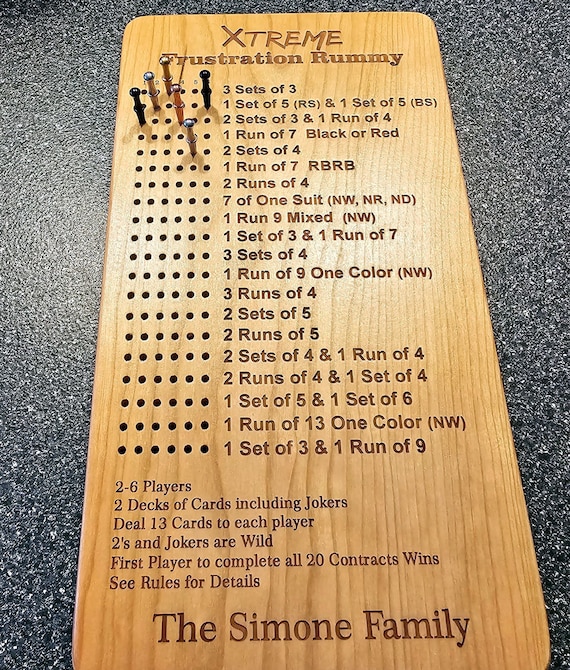 XTREME
Frustration Rummy
3 Sets of 3
1 Set of 5 (RS) & 1 Set of 5 (BS)
2 Sets of 3 & 1 Run of 4
1 Run of 7 Black or Red
2 Sets of 4
1 Run of 7 RBRB
2 Runs of 4
7 of One Suit (NW, NR, ND)
1 Run 9 Mixed (NW)
1 Set of 3 & 1 Run of 7
3 Sets of 4
1 Run of 9 One Color (NW)
3 Runs of 4
2 Sets of 5
2 Runs of 5
2 Sets of 4 & 1 Run of 4
2 Runs of 4 & 1 Set of 4
1 Set of 5 & 1 Set of 6
1 Run of 13 One Color (NW)
1 Set of 3 & 1 Run of 9
2-6 Players
2 Decks of Cards including Jokers
Deal 13 Cards to each player
2's and Jokers are Wild
First Player to complete all 20 Contracts Wins
See Rules for Details
The Simone Family